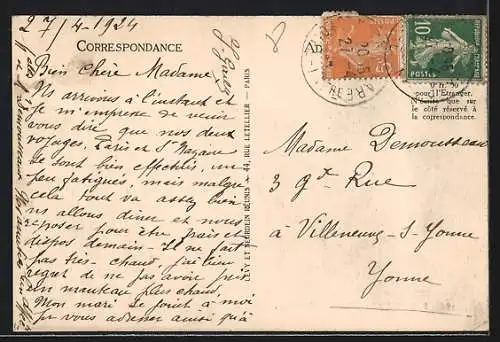 27/4-1924
CORRESPONDANCE
Bien Chère Madame
Ns arrivons à l'instant et
je m'empresse de venir
vous dire que nos deux
voyages, Paris et St Nazaire
se sont bien effectués, un
peu fatigués, mais malgré
cela tout va assez bien
ns allons diner et nous
reposer pour être frais et
dispos demain - Il ne fait
pas très-chaud, j'ai bien
regret de ne pas avoir pris
un manteau plus chaud.
Mon mari se joint à moi
pr vous adresser ainsi qu'à
LÉVY ET NEURDEIN RÉUNIS, 44, RUE LETELLIER - PARIS
10
POSTES
pour l'Étranger.
N'écrire que sur
le côté réservé à
la correspondance.
Madame Demousseau
3 gde Rue
à Villeneuve-S-Yonne
Yonne